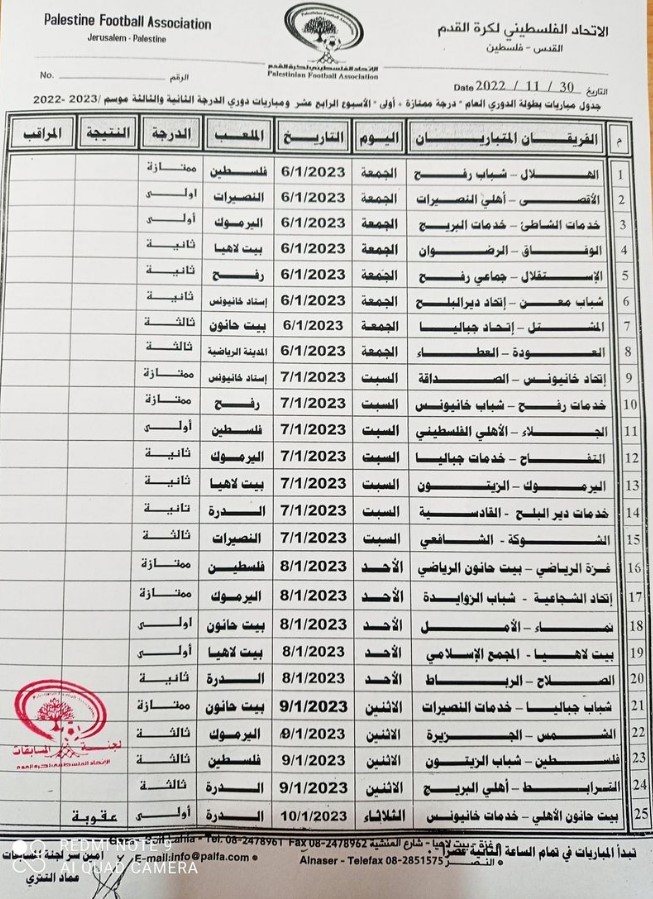 Palestine Football Association
Jerusalem - Palestine
الاتحاد الفلسطيني لكرة القدم
القدس - فلسطين
الإتحاد الفلسطيني لكرة القدم
Palestinian Football Association
No. الرقم
Date 2022 / 11 / 30 التاريخ
جدول مباريات بطولة الدوري العام - درجة ممتازة + أولى - الأسبوع الرابع عشر ومباريات دوري الدرجة الثانية والثالثة موسم 2023/ -2022
م الفريقان المتباريان اليوم التاريخ الملعب الدرجة النتيجة المراقب
1 الهلال – شباب رفح الجمعة 6/1/2023 فلسطين ممتازة
2 الأقصى – أهلي النصيرات الجمعة 6/1/2023 النصيرات اولى
3 خدمات الشاطئ – خدمات البريج الجمعة 6/1/2023 اليرموك أولى
4 الوفاق – الرضوان الجمعة 6/1/2023 بيت لاهيا ثانية
5 الإستقلال – جماعي رفح الجمعة 6/1/2023 رفح ثانية
6 شباب معن – إتحاد ديرالبلح الجمعة 6/1/2023 إستاد خانيونس ثانية
7 المشتل – إتحاد جباليا الجمعة 6/1/2023 بيت حانون ثالثة
8 العودة – العطاء الجمعة 6/1/2023 المدينة الرياضية ثالثة
9 إتحاد خانيونس – الصداقة السبت 7/1/2023 إستاد خانيونس ممتازة
10 خدمات رفح – شباب خانيونس السبت 7/1/2023 رفح ممتازة
11 الجلاء – الأهلي الفلسطيني السبت 7/1/2023 فلسطين أولى
12 التفاح – خدمات جباليا السبت 7/1/2023 اليرموك ثانية
13 اليرموك – الزيتون السبت 7/1/2023 بيت لاهيا ثانية
14 خدمات دير البلح - القادسية السبت 7/1/2023 الدرة ثانية
15 الشوكة - الشافعي السبت 7/1/2023 النصيرات ثالثة
16 غزة الرياضي – بيت حانون الرياضي الأحد 8/1/2023 فلسطين ممتازة
17 إتحاد الشجاعية - شباب الزوايدة الأحد 8/1/2023 اليرموك ممتازة
18 نماء – الأمل الأحد 8/1/2023 بيت حانون اولى
19 بيت لاهيا - المجمع الإسلامي الأحد 8/1/2023 بيت لاهيا أولى
20 الصلاح – الرباط الأحد 8/1/2023 الدرة ثانية
21 شباب جباليا – خدمات النصيرات الاثنين 9/1/2023 بيت حانون ممتازة
22 الشمس – الجزيرة الاثنين 9/1/2023 اليرموك ثالثة
23 فلسطين – شباب الزيتون الاثنين 9/1/2023 فلسطين ثالثة
24 الترابط – أهلي البريج الاثنين 9/1/2023 الدرة ثالثة
25 بيت حانون الأهلي – خدمات خانيونس الثلاثاء 10/1/2023 الدرة أولى عقوبة
لجنة المسابقات
الإتحاد الفلسطيني لكرة القدم
Tel: 08-2478961 Fax 08-2478962 غزة - بيت لاهيا - شارع المنشية
تبدأ المباريات في تمام الساعة الثانية عصرا
E-mail:info@palfa.com • Alnaser - Telefax 08-2851575 النصر •
أمين سر لجنة المسابقات
عماد التتري
REDMI NOTE 9
AI QUAD CAMERA